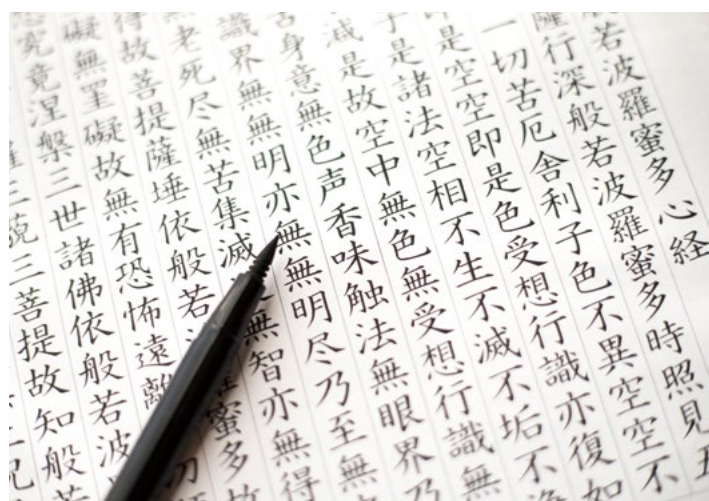 若波羅蜜多心経
薩行深般若波羅蜜多時照見五
一切苦厄舎利子色不異空空不
是空空即是色受想行識亦復如
子是諸法空相不生不滅不垢不
減是故空中無色無受想行識無
舌身意無色声香味触法無眼界乃
識界無無明亦無無明尽乃至無
老死尽無苦集滅無智亦無得
得故菩提薩埵依般若蜜多故
礙無罣礙故無有恐怖遠離
究竟涅槃三世諸佛依般若波
三藐三菩提故知般若